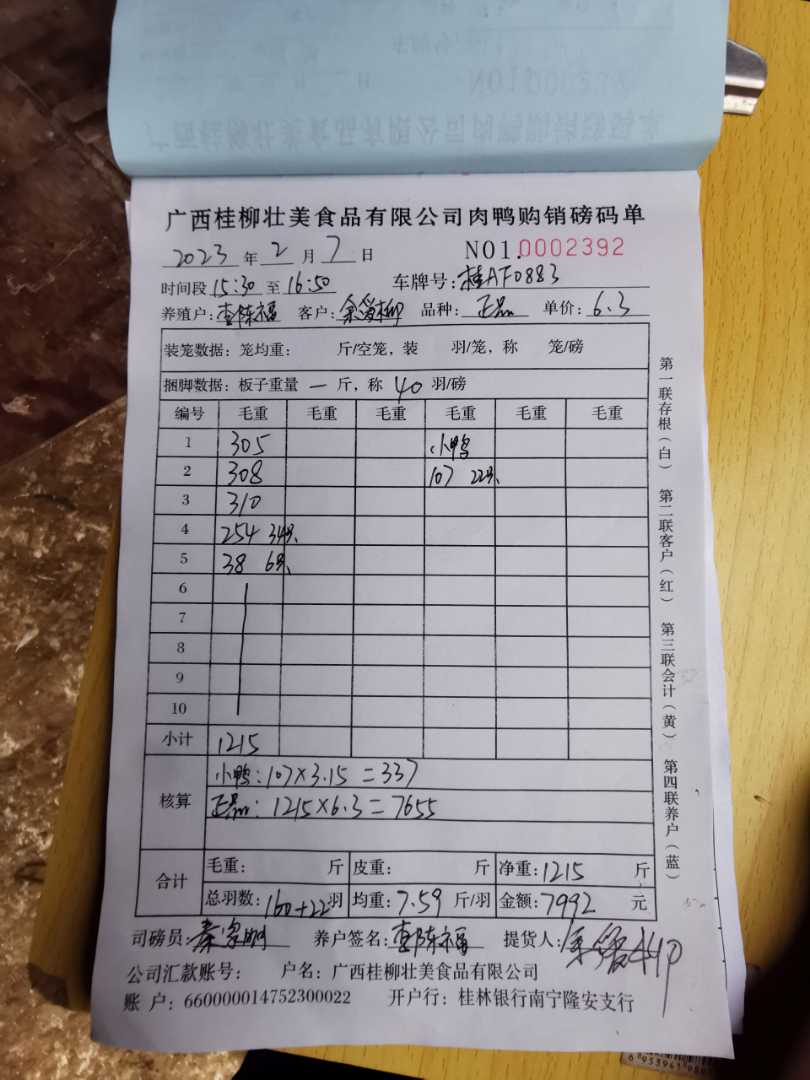 广西桂柳壮美食品有限公司肉鸭购销磅码单
2023 年 2 月 7 日 NO1.0002392
时间段 15:30 至 16:50 车牌号: 桂AF0883
养殖户: 陈福 客户: 品种: 正品 单价: 6.3
装笼数据: 笼均重: 斤/空笼, 装 羽/笼, 称 笼/磅
捆脚数据: 板子重量 一 斤, 称 40 羽/磅
编号 毛重 毛重 毛重 毛重 毛重 毛重
1 305 小鸭
2 308 107 22只
3 310
4 254 34只
5 38 6只
6
7
8
9
10
小计 1215
核算 小鸭: 107×3.15=337
正品: 1215×6.3=7655
合计 毛重: 斤 皮重: 斤 净重: 1215 斤
总羽数: 160+22羽 均重: 7.59 斤/羽 金额: 7992 元
司磅员: 秦 养户签名: 陈福 提货人:
公司汇款账号: 户名: 广西桂柳壮美食品有限公司
账 户: 660000014752300022 开户行: 桂林银行南宁隆安支行
第一联存根(白) 第二联客户(红) 第三联会计(黄) 第四联养户(蓝)